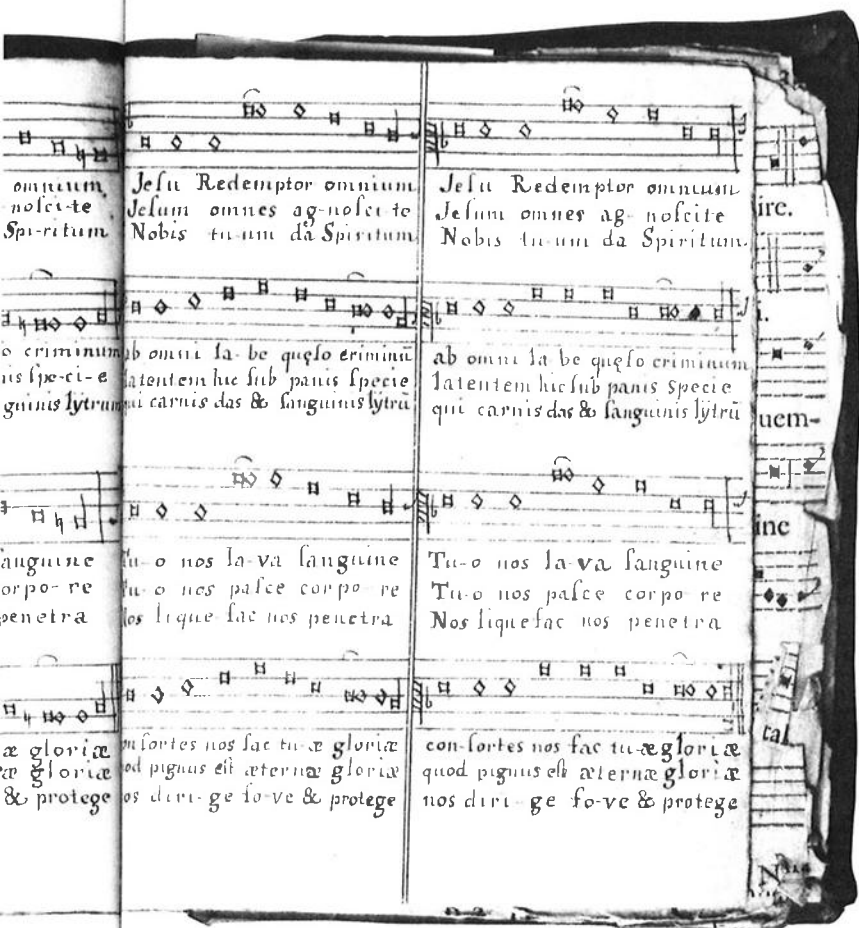 omnium
nosci-te
Spi-ritum
o criminum
nis spe-ci-e
guinis lÿtrum
anguine
orpo- re
penetra
æ gloriæ
æ gloriæ
& protege
Jesu Redemptor omnium
Jesum omnes ag-nosci te
Nobis tu-um da Spiritum
ab omni la-be quęso criminū
latentem hic sub panis specie
qui carnis das & sanguinis lÿtrū
Tu- o nos la-va sanguine
Tu- o nos pasce corpo re
Nos lique-fac nos penetra
con sortes nos fac tu-æ gloriæ
quod pignus est æternæ gloriæ
nos diri-ge fo-ve & protege
Jesu Redemptor omnium
Jesum omnes ag- noscite
Nobis tu-um da Spiritum
ab omni la be quęso criminum
latentem hic sub panis specie
qui carnis das & sanguinis lÿtrū
Tu-o nos la-va sanguine
Tu-o nos pasce corpo re
Nos liquefac nos penetra
con-sortes nos fac tu-æ gloriæ
quod pignus est æternæ gloriæ
nos diri ge fo-ve & protege
ire.
i.
uem-
ine
tal